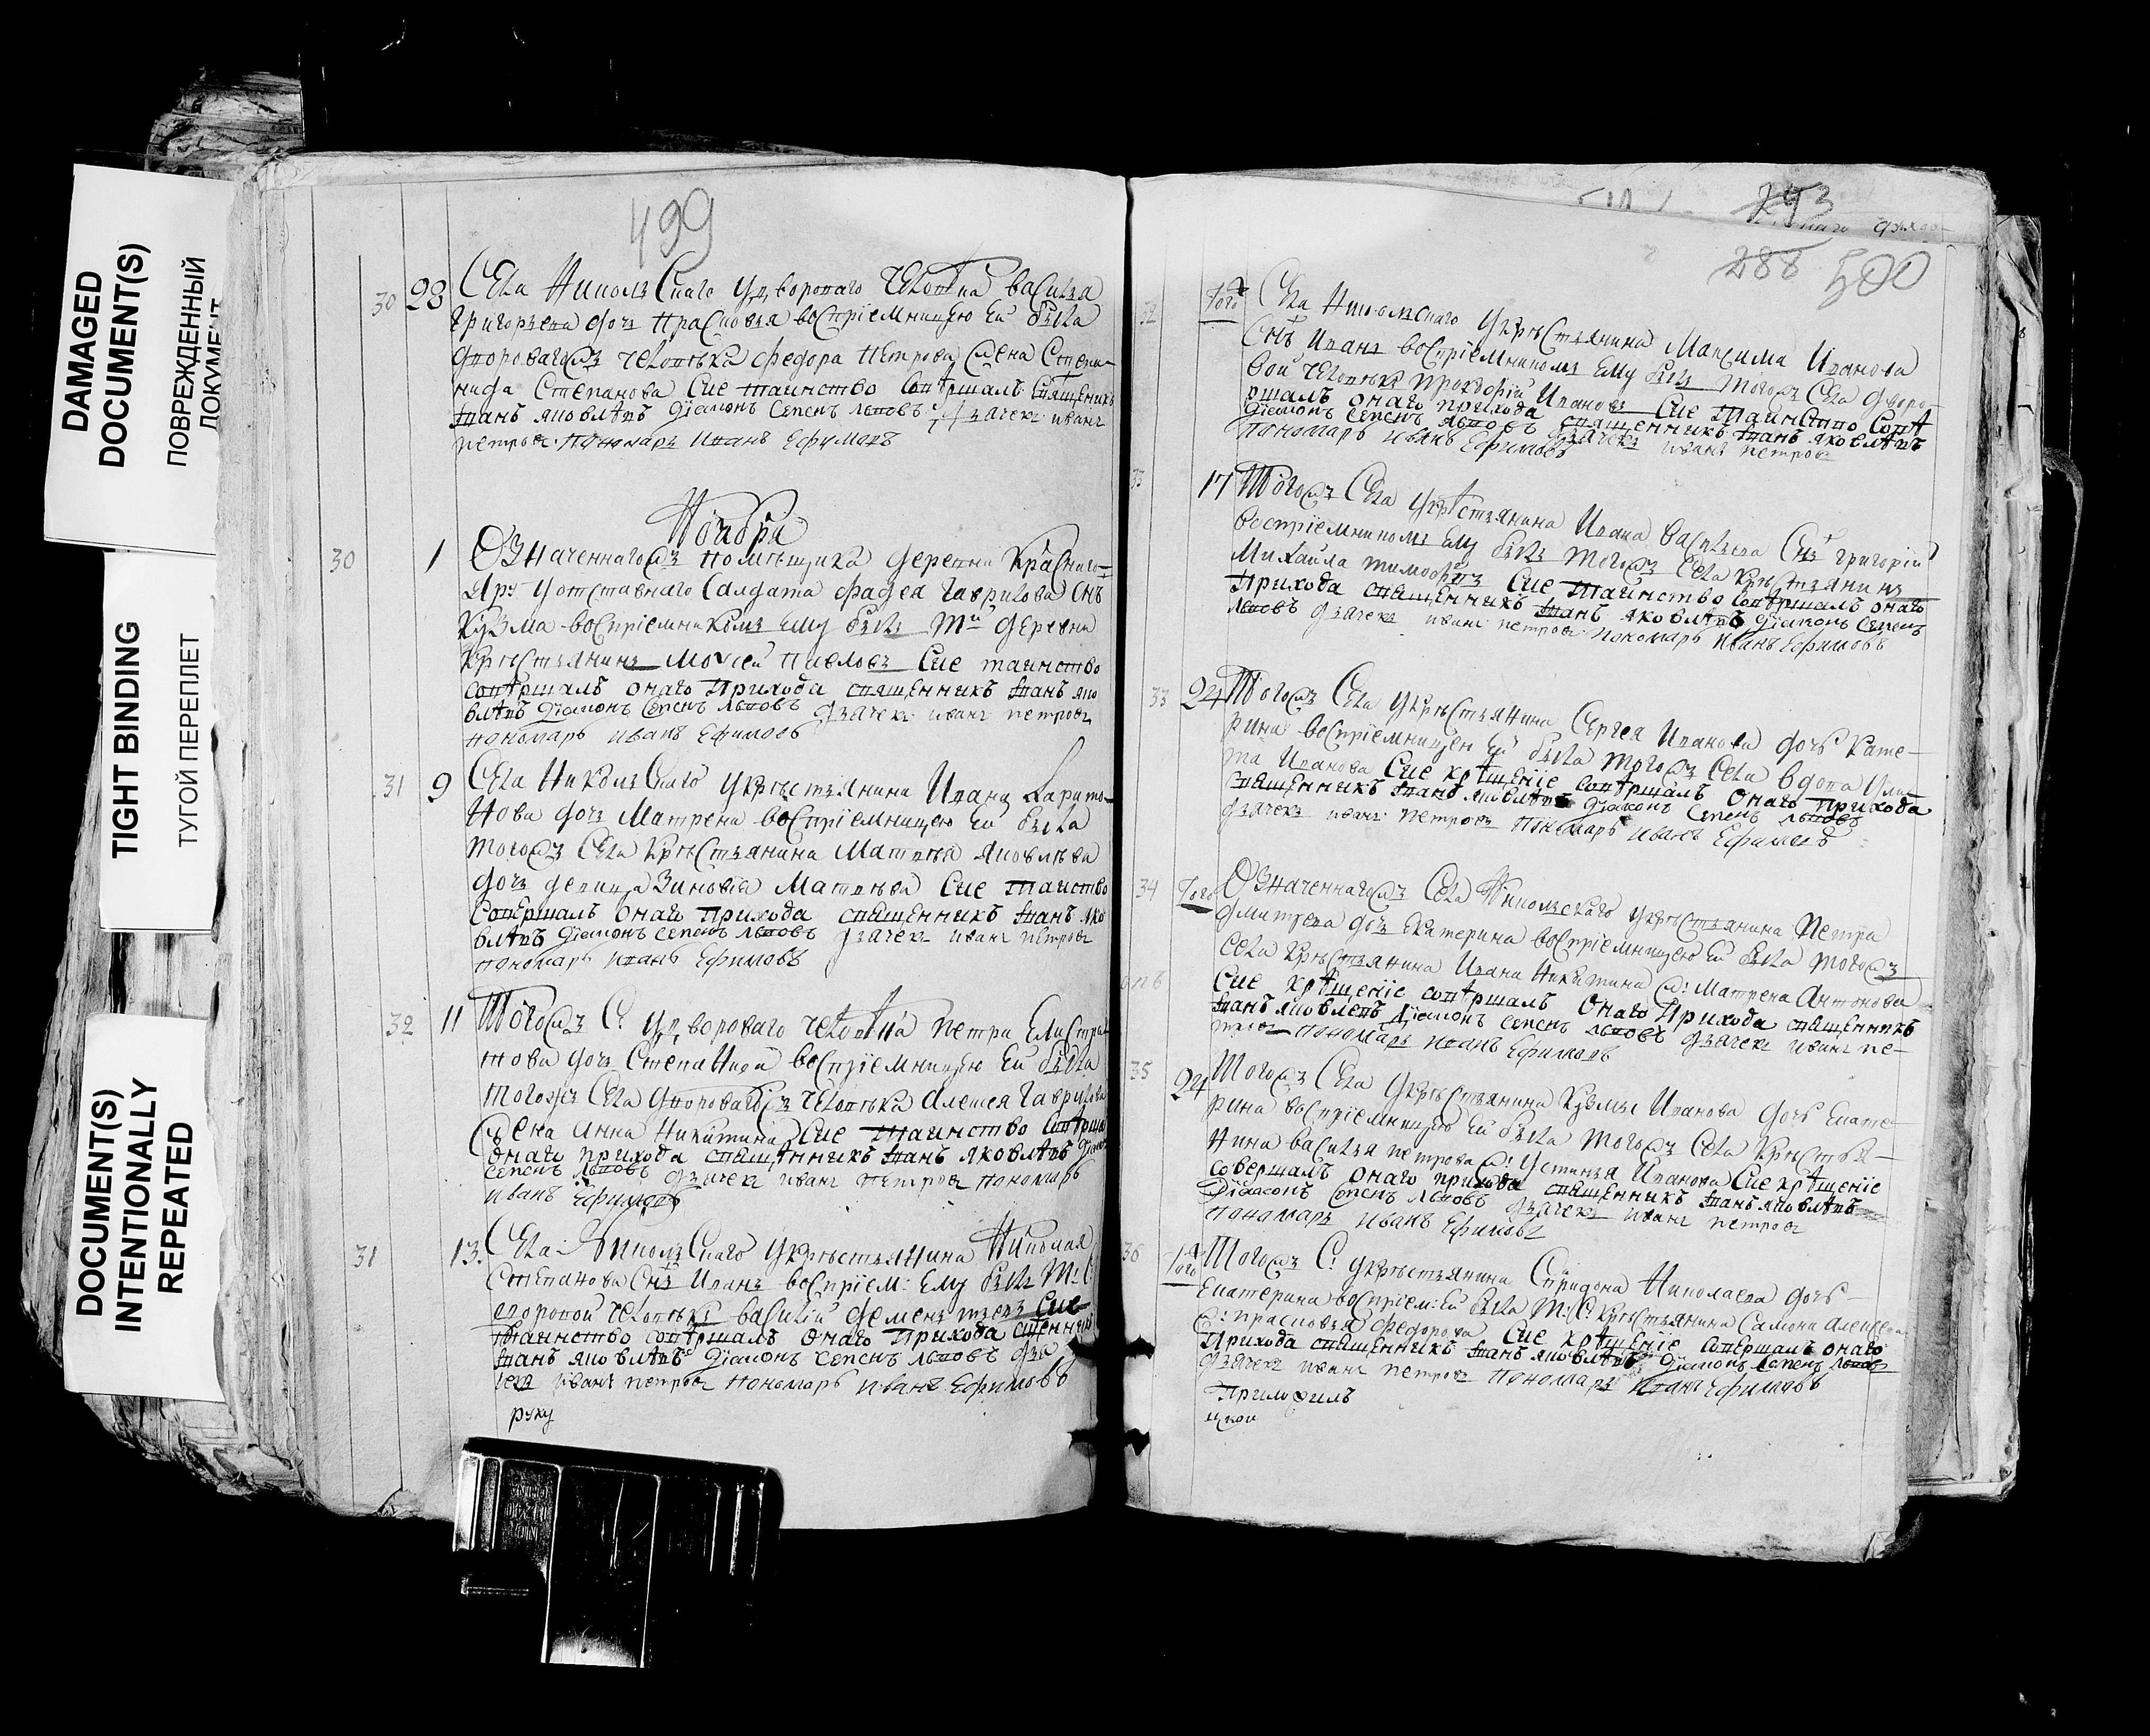 DAMAGED
DOCUMENT(S)
ПОВРЕЖДЕННЫЙ
ДОКУМЕНТ
TIGHT BINDING
ТУГОЙ ПЕРЕПЛЕТ
DOCUMENT(S)
INTENTIONALLY
REPEATED
499
30 28 Села Никольскаго у дворового человѣка василья
григорьева дочь Прасковья воспріемницею ей была
дворовагожъ человѣка федора Петрова жена Степа-
нида Степанова Сие таинство совершалъ священникъ
Іванъ яковлевъ діаконъ Семенъ львовъ дьячекъ иванъ
петровъ пономарь Иванъ Ефимовъ
Ноября
30 1 Означенногожъ помещика деревни Краснаго
Яру у отставнаго Салдата фадея Гаврилова снъ
Кузма воспріемникомъ ему былъ тй деревни
крѣстьянинъ Мотсей Павловъ Сие таинство
совершалъ онаго Прихода священникъ Іванъ яко
влевъ діаконъ Семенъ львовъ дьячекъ иванъ петровъ
пономарь иванъ Ефимовъ
31 9 Села Никольскаго у крѣстьянина Ивана Харито
нова дочь Матрена воспріемницею ей была
тогожъ Села крѣстьянина Матвѣя яковлева
дочь девица Зиновіа Матвѣева Сие таиство
Совершалъ Онаго Прихода священникъ Іванъ яко
влевъ діаконъ Семенъ львовъ дьячекъ иванъ петровъ
пономарь иванъ Ефимовъ
32 11 Тогожъ С: у дворового человѣка петра Елистра
това дочь Степанида воспріемницею ей была
тогожъ Села двороваго человѣка алексея Гаврилова
жена анна Никитина Сие таинство совершалъ
онаго прихода священникъ Іванъ яковлевъ діаконъ
семенъ львовъ дьячекъ иванъ петровъ пономарь
иванъ Ефимовъ
31 13 Села Никольскаго у крѣстьянина Николая
Степанова снъ Иванъ воспріем: ему былъ т: С:
дворовой человѣкъ василий дементьевъ Сие
таинство совершалъ Онаго Прихода священникъ
Іванъ яковлевъ діаконъ семенъ львовъ дья
чекъ иванъ петровъ пономарь иванъ Ефимовъ
руку
293
288 500
32 Того Села Никольскаго у крѣстьянина Максима Иванова
снъ Иванъ воспріемникомъ ему былъ тогожъ Села дворо-
вой человѣкъ прокофій Ивановъ Сие таинство сове
ршалъ онаго прихода священникъ Іванъ яковлевъ
діаконъ семенъ львовъ дьячекъ иванъ петровъ
пономарь иванъ Ефимовъ
33 17 Тогожъ Села у крѣстьянина Ивана васильева снъ григорій
воспріемникомъ ему былъ тогожъ Села крѣстьянинъ
Михайла тимофѣевъ Сие таинство совершалъ онаго
Прихода священникъ Іванъ яковлевъ діаконъ семенъ
львовъ дьячекъ иванъ петровъ пономарь иванъ Ефимовъ
33 24 Тогожъ Села у крѣстьянина Сергея Иванова дочь Кате-
рина воспріемницею ей была тогожъ Села вдова Ули-
та Иванова Сие крещеніе совершалъ онаго прихода
священникъ Іванъ яковлевъ діаконъ семенъ львовъ
дьячекъ иванъ петровъ пономарь иванъ Ефимовъ
34 Того Означеннагожъ Села Никольскаго у крѣстьянина Петра
дмитрева дочь Екатерина воспріемницею ей была тогожъ
села крѣстьянина Ивана Никитина ж: Матрена Антонова
Сие крещеніе совершалъ Онаго Прихода священникъ
Іванъ яковлевъ діаконъ семенъ львовъ дьячекъ иванъ пе-
тровъ пономарь иванъ Ефимовъ
35 24 Тогожъ Села у крѣстьянина Кузмы Иванова дочь Екате-
рина воспріемницею ей была тогожъ Села крѣстья-
нина василья петрова ж: Устинья Иванова Сие крещеніе
совершалъ онаго прихода священникъ Іванъ яковлевъ
діаконъ семенъ львовъ дьячекъ иванъ петровъ
пономарь иванъ Ефимовъ
36 Того Тогожъ С: у крѣстьянина Спридона Николаева дочь
Екатерина воспріем: ей была т: С: крѣстьянина Самона алексеева
ж: прасковья федорова Сие крещеніе совершалъ онаго
Прихода священникъ Іванъ яковлевъ діаконъ семенъ львовъ
дьячекъ иванъ петровъ пономарь иванъ Ефимовъ
Приложилъ